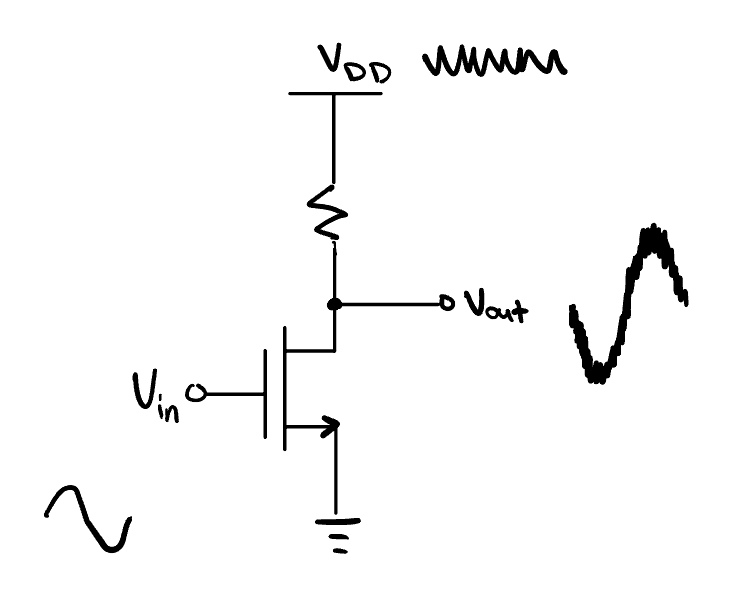 VDD
Vout
Vin